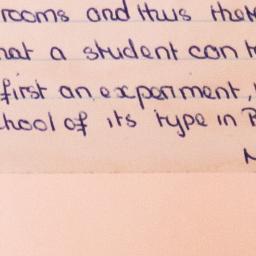 rooms and thus the
hat a student can t
first an experiment,
hool of its type in